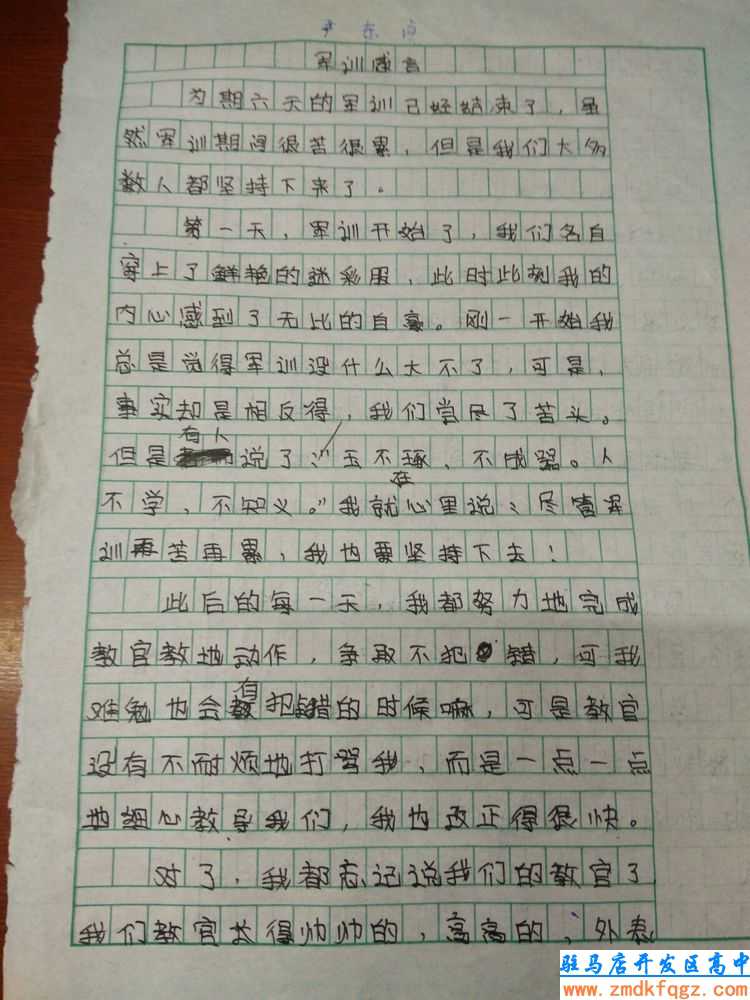 尹东
军训感言
为期六天的军训已经结束了，虽
然军训期间很苦很累，但是我们大多
数人都坚持下来了。
第一天，军训开始了，我们各自
穿上了鲜艳的迷彩服，此时此刻我的
内心感到了无比的自豪。刚一开始我
总是觉得军训没什么大不了，可是，
事实却是相反得，我们尝尽了苦头。
但是有人说了：“玉不琢、不成器。人
不学，不知义。”我就在心里说：尽管军
训再苦再累，我也要坚持下去！
此后的每一天，我都努力地完成
教官教地动作，争取不犯错，可我
难勉也会有犯错的时候嘛，可是教官
没有不耐烦地打骂我，而是一点一点
地细心教导我们，我也改正得很快。
对了，我都忘记说我们的教官了
我们教官长得帅帅的，高高的，外表
驻马店开发区高中
www.zmdkfqgz.com